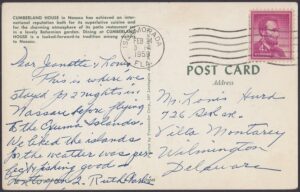 CUMBERLAND HOUSE in Nassau has achieved an inter-
national reputation both for its superlative cuisine and
for the charming atmosphere of its patio restaurant set
in a lovely Bahamian garden. Dining at CUMBERLAND
HOUSE is a looked-forward-to tradition among visitors
to Nassau.
ISLAMORADA
FEB
1959
FLA.
POST CARD
Address
Dear Jeanette & Louis
This is where we
stayed 2 nights in
Nassau before flying
to the Islands.
We liked the islands
for the weather was per-
fect, fishing good &
Ruth
Mr. Louis Hurd
726
Villa Monterey
Wilmington
Delaware